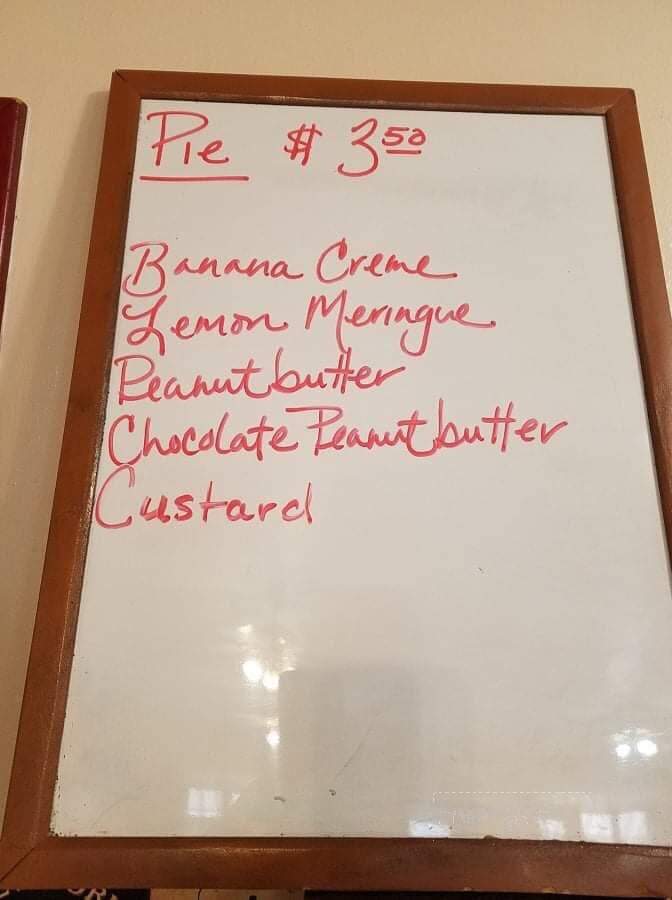 Pie $ 3.50
Banana Creme
Lemon Meringue
Peanutbutter
Chocolate Peanutbutter
Custard